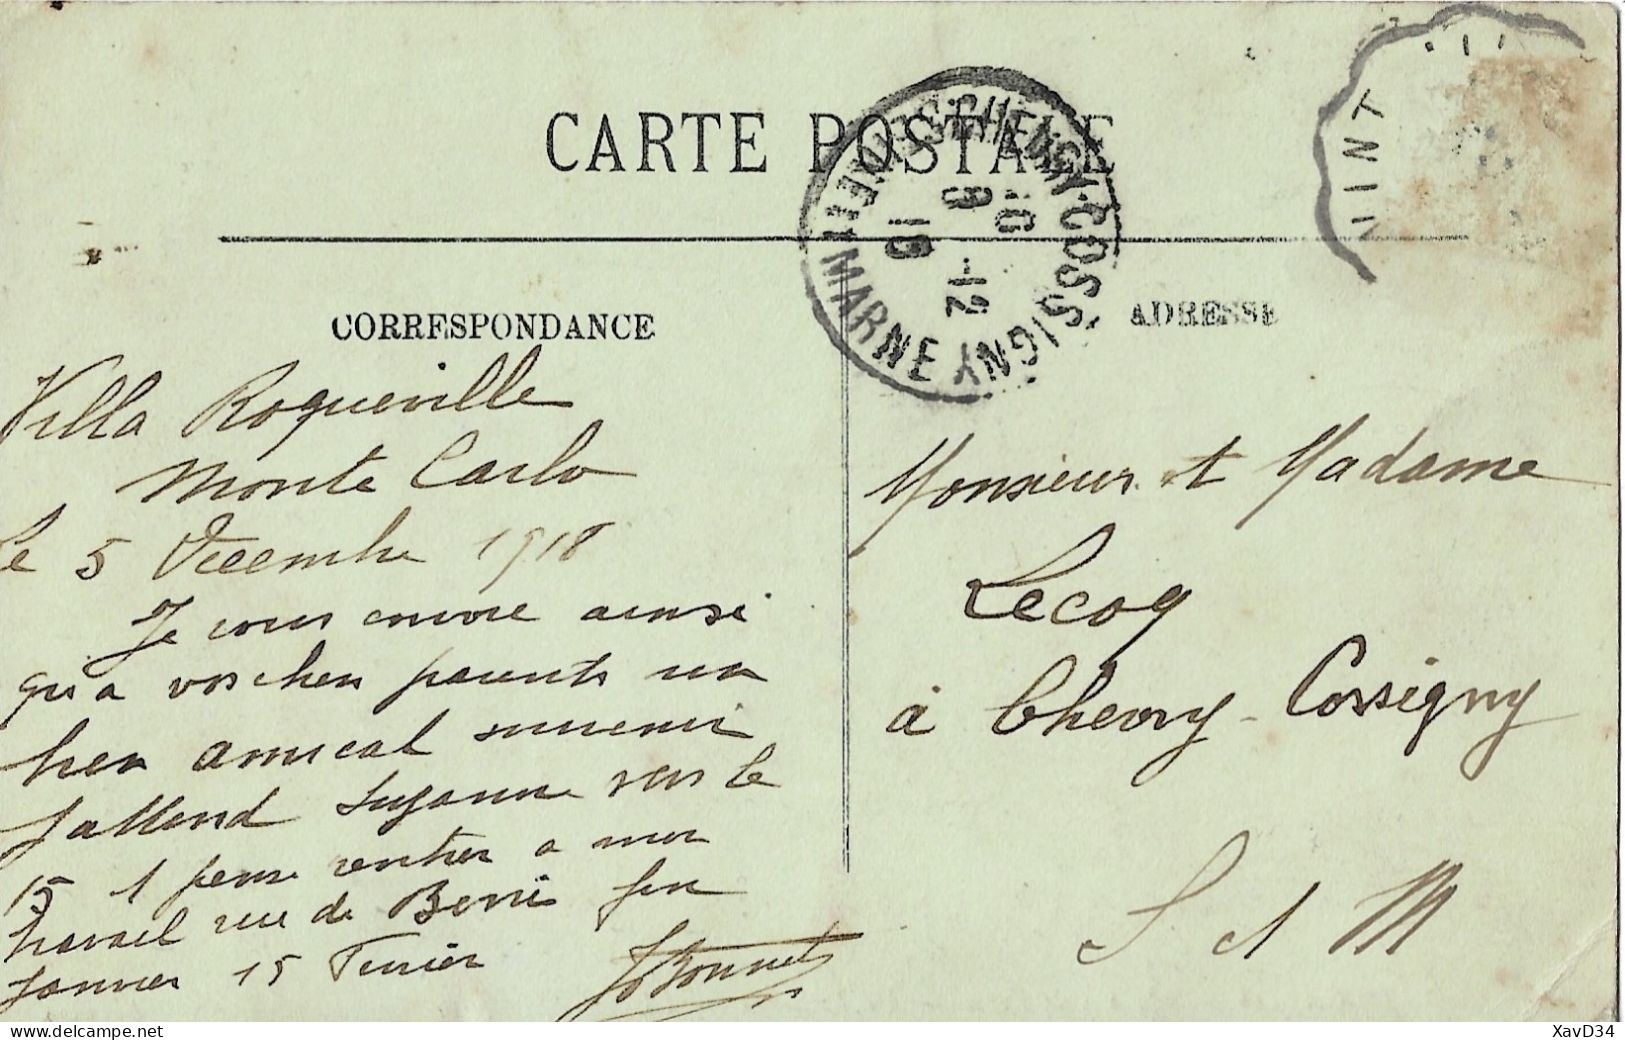 CARTE POSTALE
CORRESPONDANCE
Villa Roqueville
Monte Carlo
Le 5 Decembre 1918
Je vous envoie ainsi
qu'a vos chers parents mon
bien amical souvenir
J'attend Suzanne vers le
15 & pense rentrer a mon
travail rue de Berri fin
Janvier 15 Fevrier
Bonnet
ADRESSE
Monsieur et Madame
Lecoq
à Chevry-Cossigny
S et M
CHEVRY-COSSIGNY
10
9 -12
18
MARNE
MINT
XavD34
delcampe.net